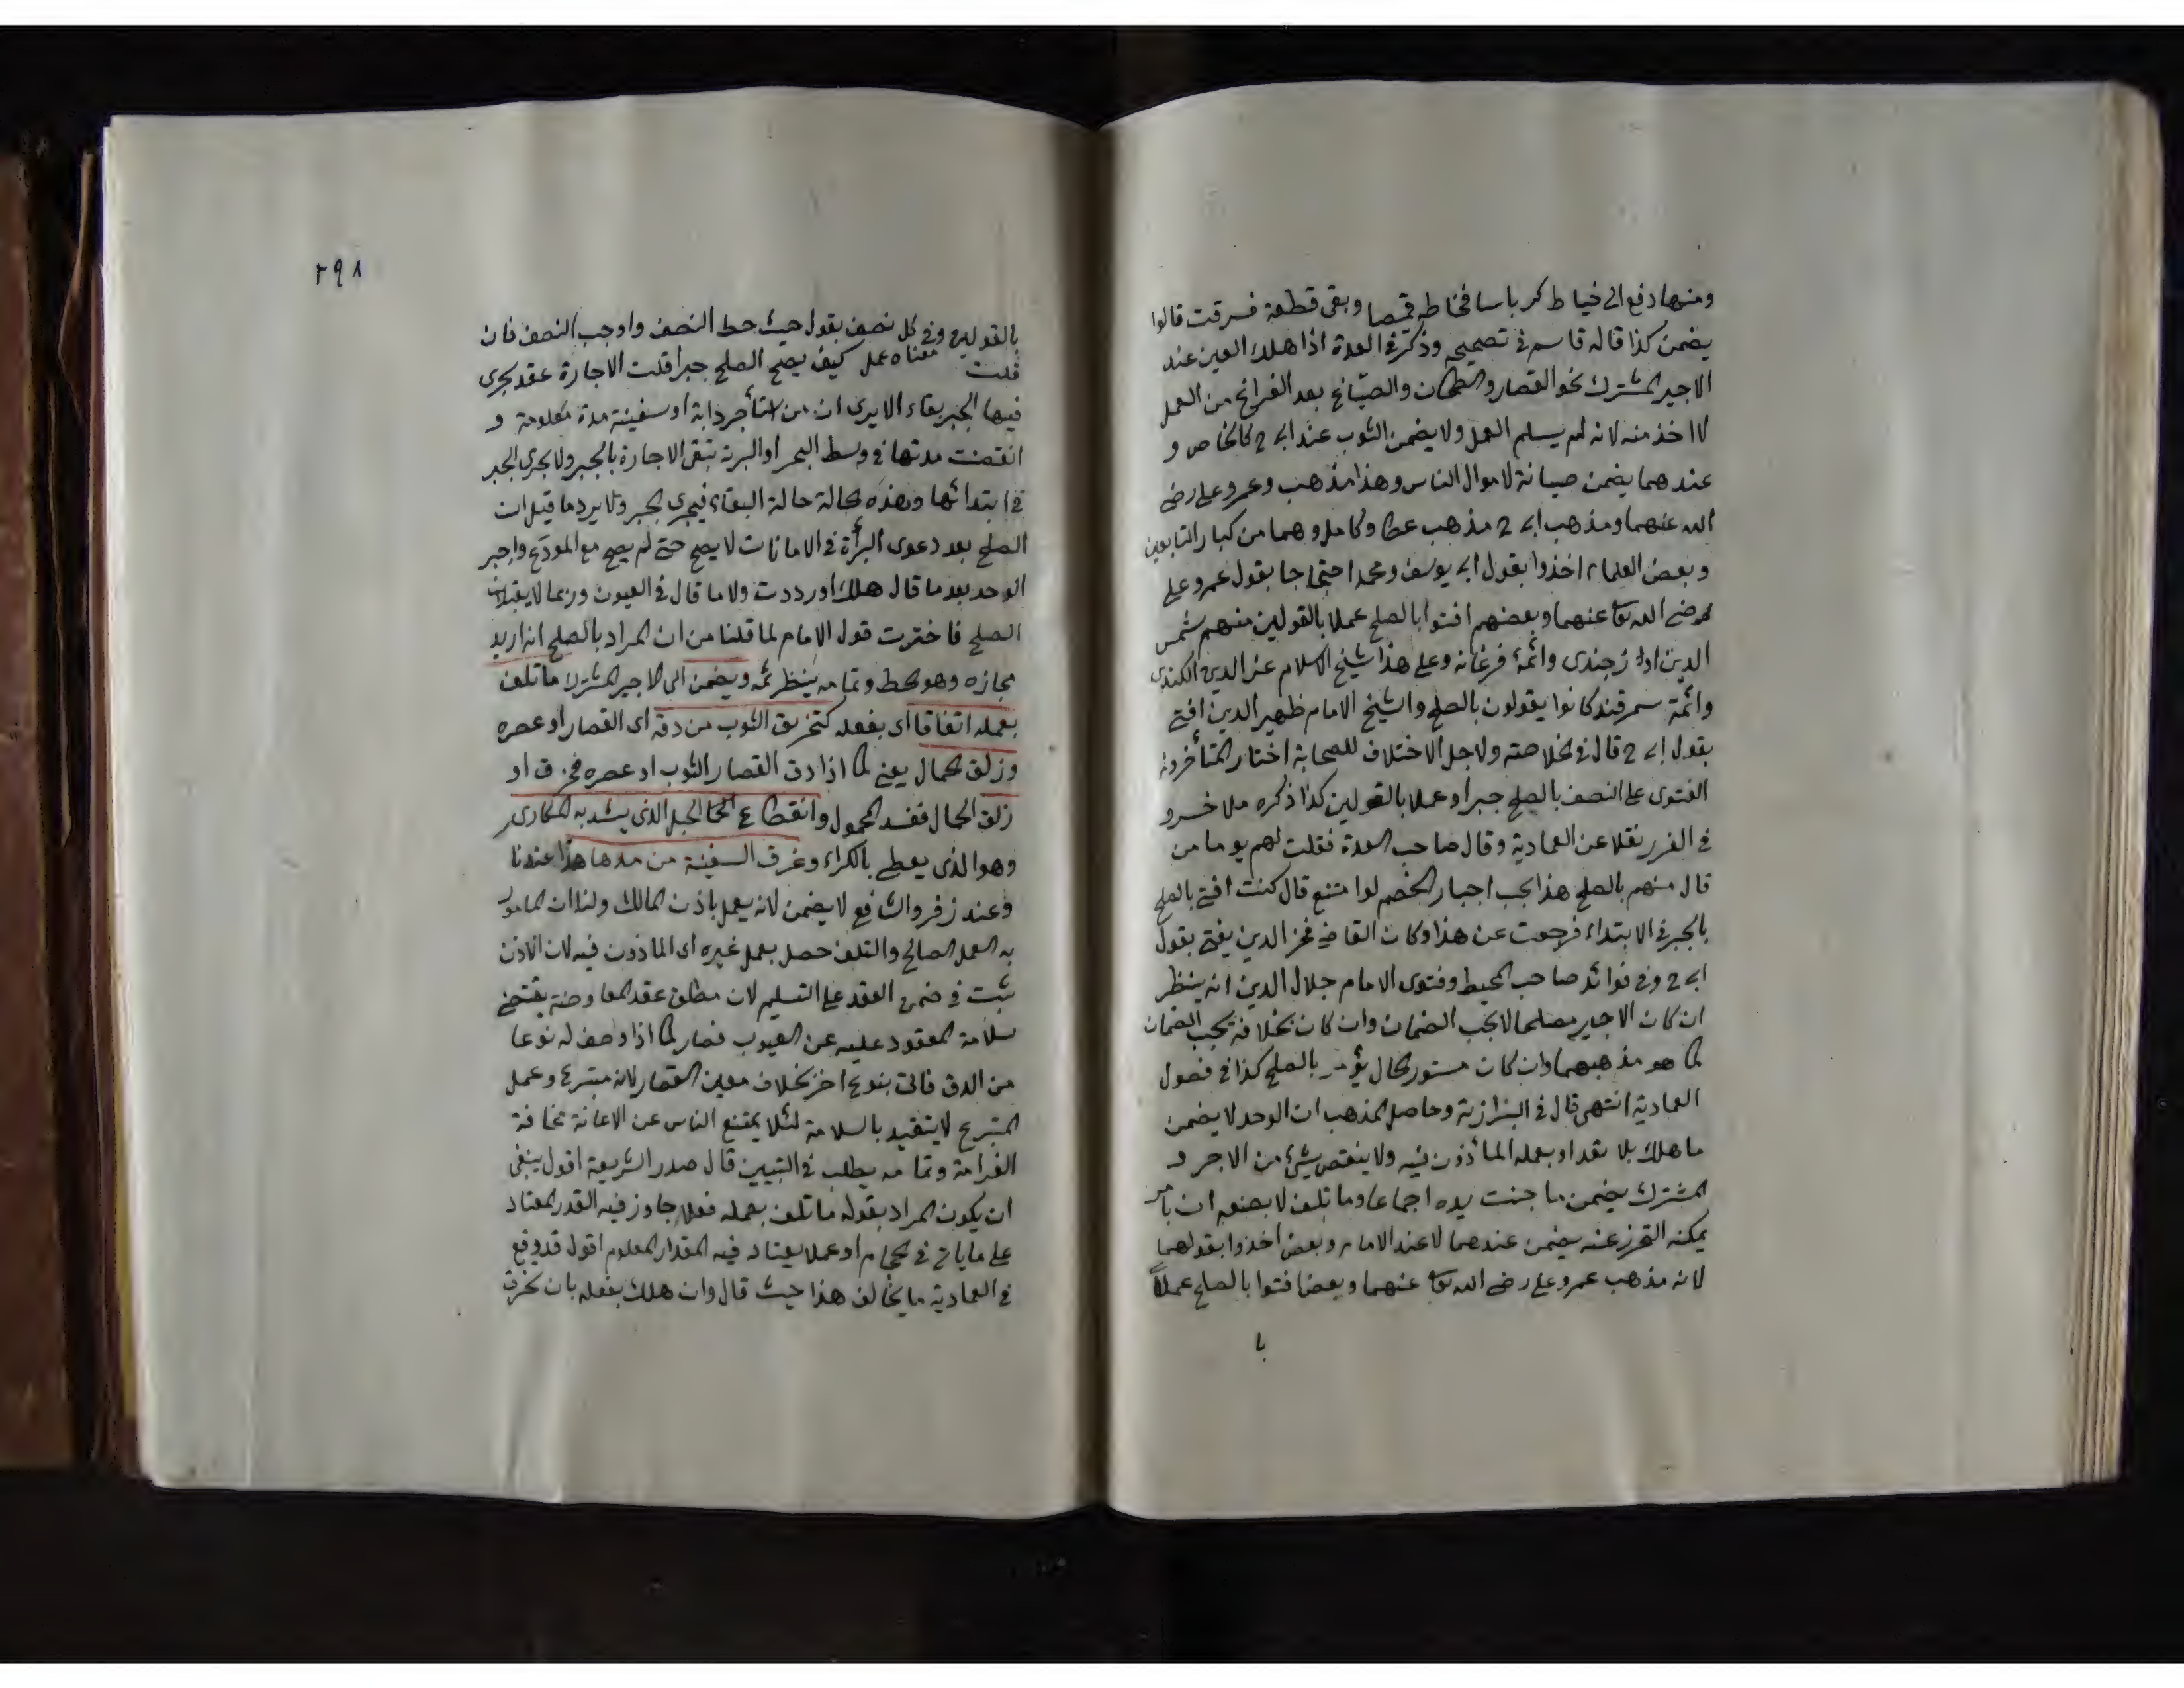 ومنها دفع الى خياط كرباسا فخاطه قميصا وبقى قطعة فسرقت قالوا
يضمن كذا قاله قاسم فى تصحيحه وذكر فى العدة اذا هلك العين عند
الاجير المشترك نحو القصار والطحان والصباغ بعد الفراغ من العمل
لا اخذ منه لانه لم يسلم العمل ولا يضمن الثوب عند ابى ح كالخاص و
عندهما يضمن صيانة لاموال الناس وهذا مذهب وعمر وعلى رضى
الله عنهما ومذهب ابى ح مذهب عطا وكامل وهما من كبار التابعين
وبعض العلماء اخذوا بقول ابى يوسف ومحمد احتجاجا بقول عمر وعلى
رضى الله تعا عنهما وبعضهم افتوا بالصلح عملا بالقولين منهم شمس
الدين الاوزجندى وائمة فرغانه وعلى هذا شيخ الاسلام عز الدين الكندى
وائمة سمرقند كانوا يقولون بالصلح والشيخ الامام ظهير الدين افتى
بقول ابى ح قال فى الخلاصة ولاجل الاختلاف للصحابة اختار المتأخرون
الفتوى على النصف بالصلح جبرا وعملا بالقولين كذا ذكره ملا خسرو
فى الغرر نقلا عن العمادية وقال صاحب العدة فقلت لهم يوما من
قال منهم بالصلح هذا يجب اجبار الخصم لو امتنع قال كنت افتى بالصلح
بالجبر فى الابتداء فرجعت عن هذا وكان القاضى فخر الدين يفتى بقول
ابى ح وفى فوائد صاحب المحيط وفتوى الامام جلال الدين انه ينظر
ان كان الاجير مصلحا لا يجب الضمان وان كان بخلافه يجب الضمان
كما هو مذهبهما وان كان مستور الحال يؤمر بالصلح كذا فى فصول
العمادية انتهى قال فى البزازية وحاصل المذهب ان الوحد لا يضمن
ما هلك بلا تعد او بعمله المأذون فيه ولا ينقص شئ من الاجر و
المشترك يضمن ما جنت يده اجماعا وما تلف لا بصنعه ان بامر
يمكنه التحرز عنه يضمن عندهما لا عند الامام وبعض اخذوا بقولهما
لانه مذهب عمر وعلى رضى الله تعا عنهما وبعض افتوا بالصلح عملاً
با
٢٩٨
بالقولين وفى كل نصف بقول حيث حط النصف واوجب النصف فان
قلت معناه عمل كيف يصح الصلح جبرا قلت الاجارة عقد يجرى
فيها الجبر بقاء الا يرى ان من استأجر دابة او سفينة مدة معلومة و
انقضت مدتها فى وسط البحر او البرية تبقى الاجارة بالجبر ولا يجرى الجبر
فى ابتدائها وهذه حالة حالة البقاء فيجرى الجبر ولا يرد ما قيل ان
الصلح بعد دعوى البرأة فى الامانات لا يصح حتى لم يصح مع المودع واجير
الوحد بعد ما قال هلك او رددت ولا ما قال فى العيون وربما لا يقبلان
الصلح فاخترت قول الامام لما قلنا من ان المراد بالصلح اذا اريد
مجازه وهو الحط وتمامه ينظر ثمه ويضمن الى الاجير المشترك ما تلف
بعمله اتفاقا اى بفعله كتخريق الثوب من دقه اى القصار او عصره
وزلق الحمال يعنى كما اذا دق القصار الثوب او عصره فخرق او
زلق الحمال ففسد المحمول وانقطاع الحبل الذى يشد به المكارى
وهو الذى يعطى بالكراء وغرق السفينة من مدها هذا عندنا
وعند زفر والشافعى لا يضمن لانه يعمل باذن المالك ولنا ان المامور
به العمل الصالح والتلف حصل بعمل غيره اى الماذون فيه لان الاذن
ثبت فى ضمن العقد على التسليم لان مطلق عقد المعاوضة يقتضى
سلامة المعقود عليه عن العيوب فصار كما اذا وصف له نوعا
من الدق فاتى بنوع اخر بخلاف معين القصار لانه متبرع وعمل
المتبرع لا يتقيد بالسلامة لئلا يمتنع الناس عن الاعانة مخافة
الغرامة وتمامه يطلب فى التبيين قال صدر الشريعة اقول ينبغى
ان يكون المراد بقوله ما تلف بعمله فعلا جاوز فيه القدر المعتاد
على ما ياتى فى الحجام او عملا يعتاد فيه المقدار المعلوم اقول قد وقع
فى العمادية ما يخالف هذا حيث قال وان هلك بفعله بان تخرق